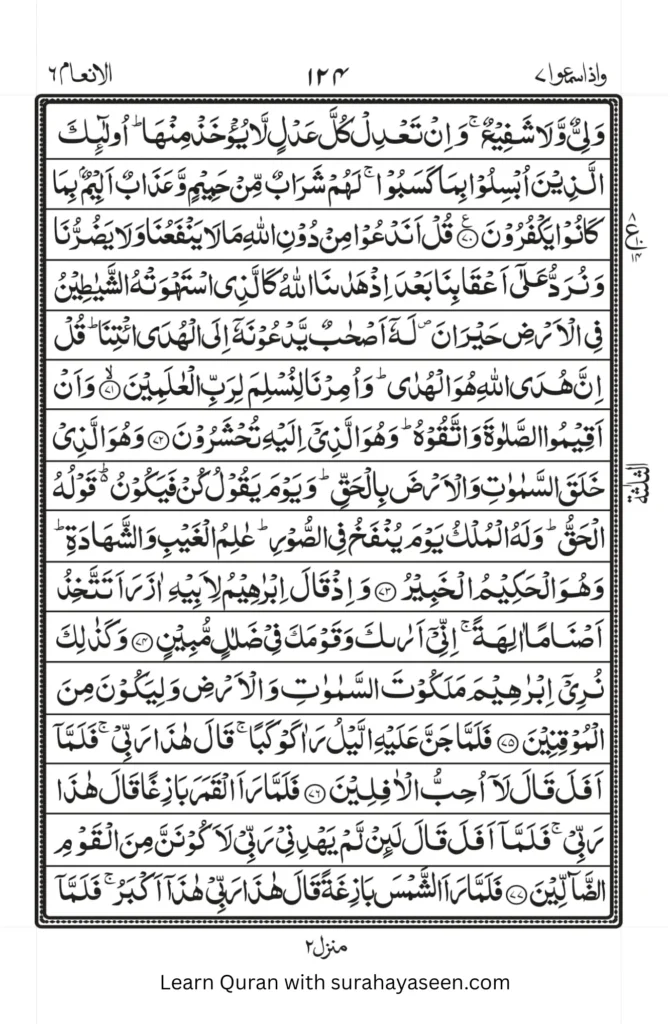 واذاسمعوا ۷ ۱۲۴ الانعام ۶
وَلِیٌّ وَّلَا شَفِیْعٌ ۚ وَ اِنْ تَعْدِلْ كُلَّ عَدْلٍ لَّا یُؤْخَذْ مِنْهَا ؕ اُولٰٓىِٕكَ
الَّذِیْنَ اُبْسِلُوْا بِمَا كَسَبُوْا ۚ لَهُمْ شَرَابٌ مِّنْ حَمِیْمٍ وَّ عَذَابٌ اَلِیْمٌۢ بِمَا
كَانُوْا یَكْفُرُوْنَ ۟ع ۷۰ قُلْ اَنَدْعُوْا مِنْ دُوْنِ اللّٰهِ مَا لَا یَنْفَعُنَا وَ لَا یَضُرُّنَا
ع ۸ ۱۰ ۱۴
وَ نُرَدُّ عَلٰۤی اَعْقَابِنَا بَعْدَ اِذْ هَدٰىنَا اللّٰهُ كَالَّذِی اسْتَهْوَتْهُ الشَّیٰطِیْنُ
فِی الْاَرْضِ حَیْرَانَ ۪ لَهٗۤ اَصْحٰبٌ یَّدْعُوْنَهٗۤ اِلَی الْهُدَی ائْتِنَا ؕ قُلْ
اِنَّ هُدَی اللّٰهِ هُوَ الْهُدٰی ؕ وَ اُمِرْنَا لِنُسْلِمَ لِرَبِّ الْعٰلَمِیْنَ ۙ ۷۱ وَ اَنْ
اَقِیْمُوا الصَّلٰوةَ وَ اتَّقُوْهُ ؕ وَ هُوَ الَّذِیْۤ اِلَیْهِ تُحْشَرُوْنَ ۷۲ وَ هُوَ الَّذِیْ
خَلَقَ السَّمٰوٰتِ وَ الْاَرْضَ بِالْحَقِّ ؕ وَ یَوْمَ یَقُوْلُ كُنْ فَیَكُوْنُ ۬ؕ قَوْلُهُ
الثلٰثة
الْحَقُّ ؕ وَ لَهُ الْمُلْكُ یَوْمَ یُنْفَخُ فِی الصُّوْرِ ؕ عٰلِمُ الْغَیْبِ وَ الشَّهَادَةِ ؕ
وَ هُوَ الْحَكِیْمُ الْخَبِیْرُ ۷۳ وَ اِذْ قَالَ اِبْرٰهِیْمُ لِاَبِیْهِ اٰزَرَ اَتَتَّخِذُ
اَصْنَامًا اٰلِهَةً ۚ اِنِّیْۤ اَرٰىكَ وَ قَوْمَكَ فِیْ ضَلٰلٍ مُّبِیْنٍ ۷۴ وَ كَذٰلِكَ
نُرِیْۤ اِبْرٰهِیْمَ مَلَكُوْتَ السَّمٰوٰتِ وَ الْاَرْضِ وَ لِیَكُوْنَ مِنَ
الْمُوْقِنِیْنَ ۷۵ فَلَمَّا جَنَّ عَلَیْهِ الَّیْلُ رَاٰ كَوْكَبًا ۚ قَالَ هٰذَا رَبِّیْ ۚ فَلَمَّاۤ
اَفَلَ قَالَ لَاۤ اُحِبُّ الْاٰفِلِیْنَ ۷۶ فَلَمَّا رَاَ الْقَمَرَ بَازِغًا قَالَ هٰذَا
رَبِّیْ ۚ فَلَمَّاۤ اَفَلَ قَالَ لَىِٕنْ لَّمْ یَهْدِنِیْ رَبِّیْ لَاَكُوْنَنَّ مِنَ الْقَوْمِ
الضَّآلِّیْنَ ۷۷ فَلَمَّا رَاَ الشَّمْسَ بَازِغَةً قَالَ هٰذَا رَبِّیْ هٰذَاۤ اَكْبَرُ ۚ فَلَمَّاۤ
منزل ۲
Learn Quran with surahayaseen.com